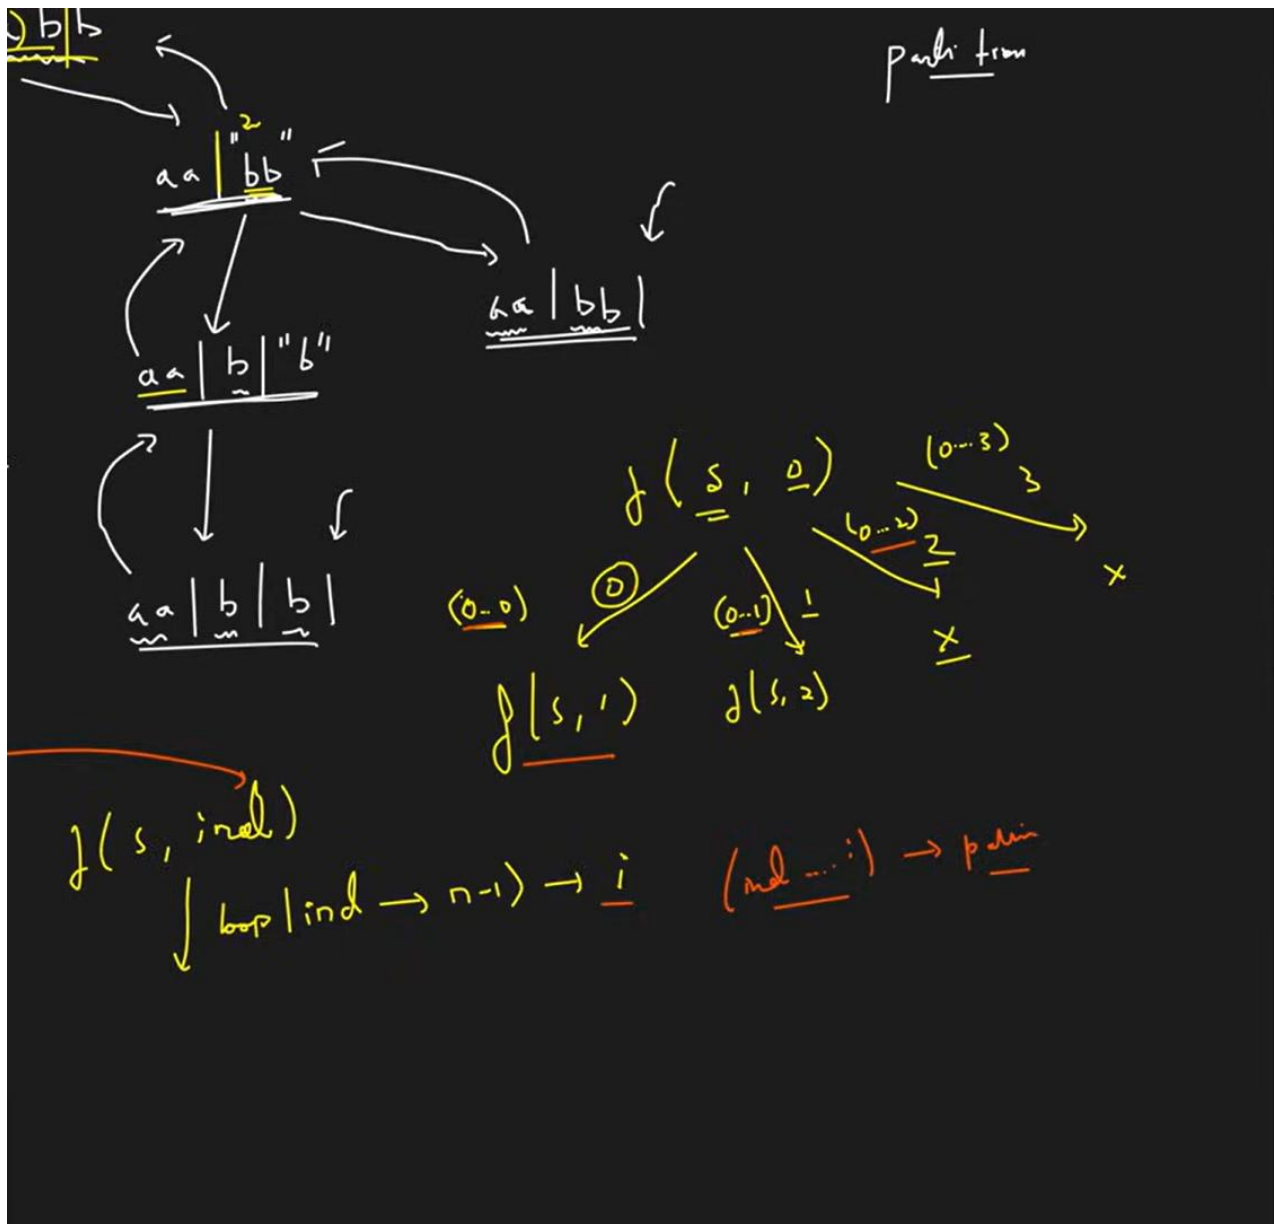 ) b|b
partition
2
aa | "bb"
aa | bb |
aa | b | "b"
aa | b | b |
f(s, 0)
(0...3)
3
(0...2)
2
(0..0)
0
(0..1)
1
x
x
f(s, 1)
f(s, 2)
f(s, ind)
loop(ind → n-1) → i
(ind ... i) → palin